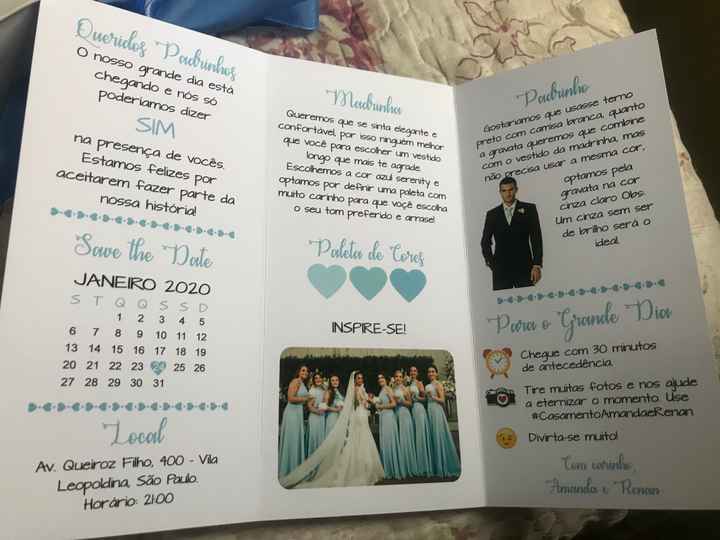 Queridos Padrinhos
O nosso grande dia está
chegando e nós só
poderíamos dizer
SIM
na presença de vocês.
Estamos felizes por
aceitarem fazer parte da
nossa história!
Save the Date
JANEIRO 2020
S T Q Q S S D
1 2 3 4 5
6 7 8 9 10 11 12
13 14 15 16 17 18 19
20 21 22 23 24 25 26
27 28 29 30 31
Local
Av. Queiroz Filho, 400 - Vila
Leopoldina, São Paulo.
Horário: 21:00
Madrinha
Queremos que se sinta elegante e
confortável, por isso ninguém melhor
que você para escolher um vestido
longo que mais te agrade.
Escolhemos a cor azul serenity e
optamos por definir uma paleta com
muito carinho para que você escolha
o seu tom preferido e arrase!
Paleta de Cores
INSPIRE-SE!
Padrinho
Gostaríamos que usasse terno
preto com camisa branca, quanto
a gravata queremos que combine
com o vestido da madrinha, mas
não precisa usar a mesma cor,
optamos pela
gravata na cor
cinza claro Obs:
Um cinza sem ser
de brilho será o
ideal.
Para o Grande Dia
Chegue com 30 minutos
de antecedência.
Tire muitas fotos e nos ajude
a eternizar o momento. Use
#CasamentoAmandaeRenan
Divirta-se muito!
Com carinho,
Amanda e Renan